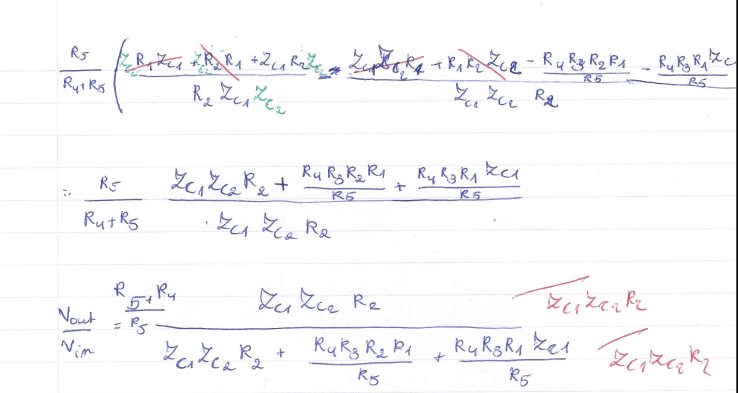 R5/(R4+R5) ( (Zc2 R1 Zc1 + Zc2 R2 R1 + Zc1 R2 Zc2)/(R2 Zc1 Zc2) - (Zc1 Zc2 R1 + R1 R2 Zc2 - R4 R3 R2 R1/R5 - R4 R3 R1 Zc/R5)/(Zc1 Zc2 R2)
: R5/(R4+R5) (Zc1 Zc2 R2 + R4 R3 R2 R1/R5 + R4 R3 R1 Zc1/R5)/(Zc1 Zc2 R2)
Vout/Vin = (R5+R4)/R5 (Zc1 Zc2 R2)/(Zc1 Zc2 R2 + R4 R3 R2 R1/R5 + R4 R3 R1 Zc1/R5) Zc1 Zc2 R2 Zc1 Zc2 R2